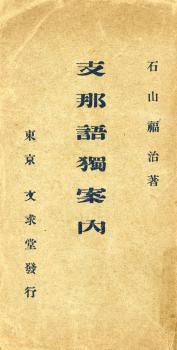 石山福治著
支那語獨案內
東京 文求堂發行